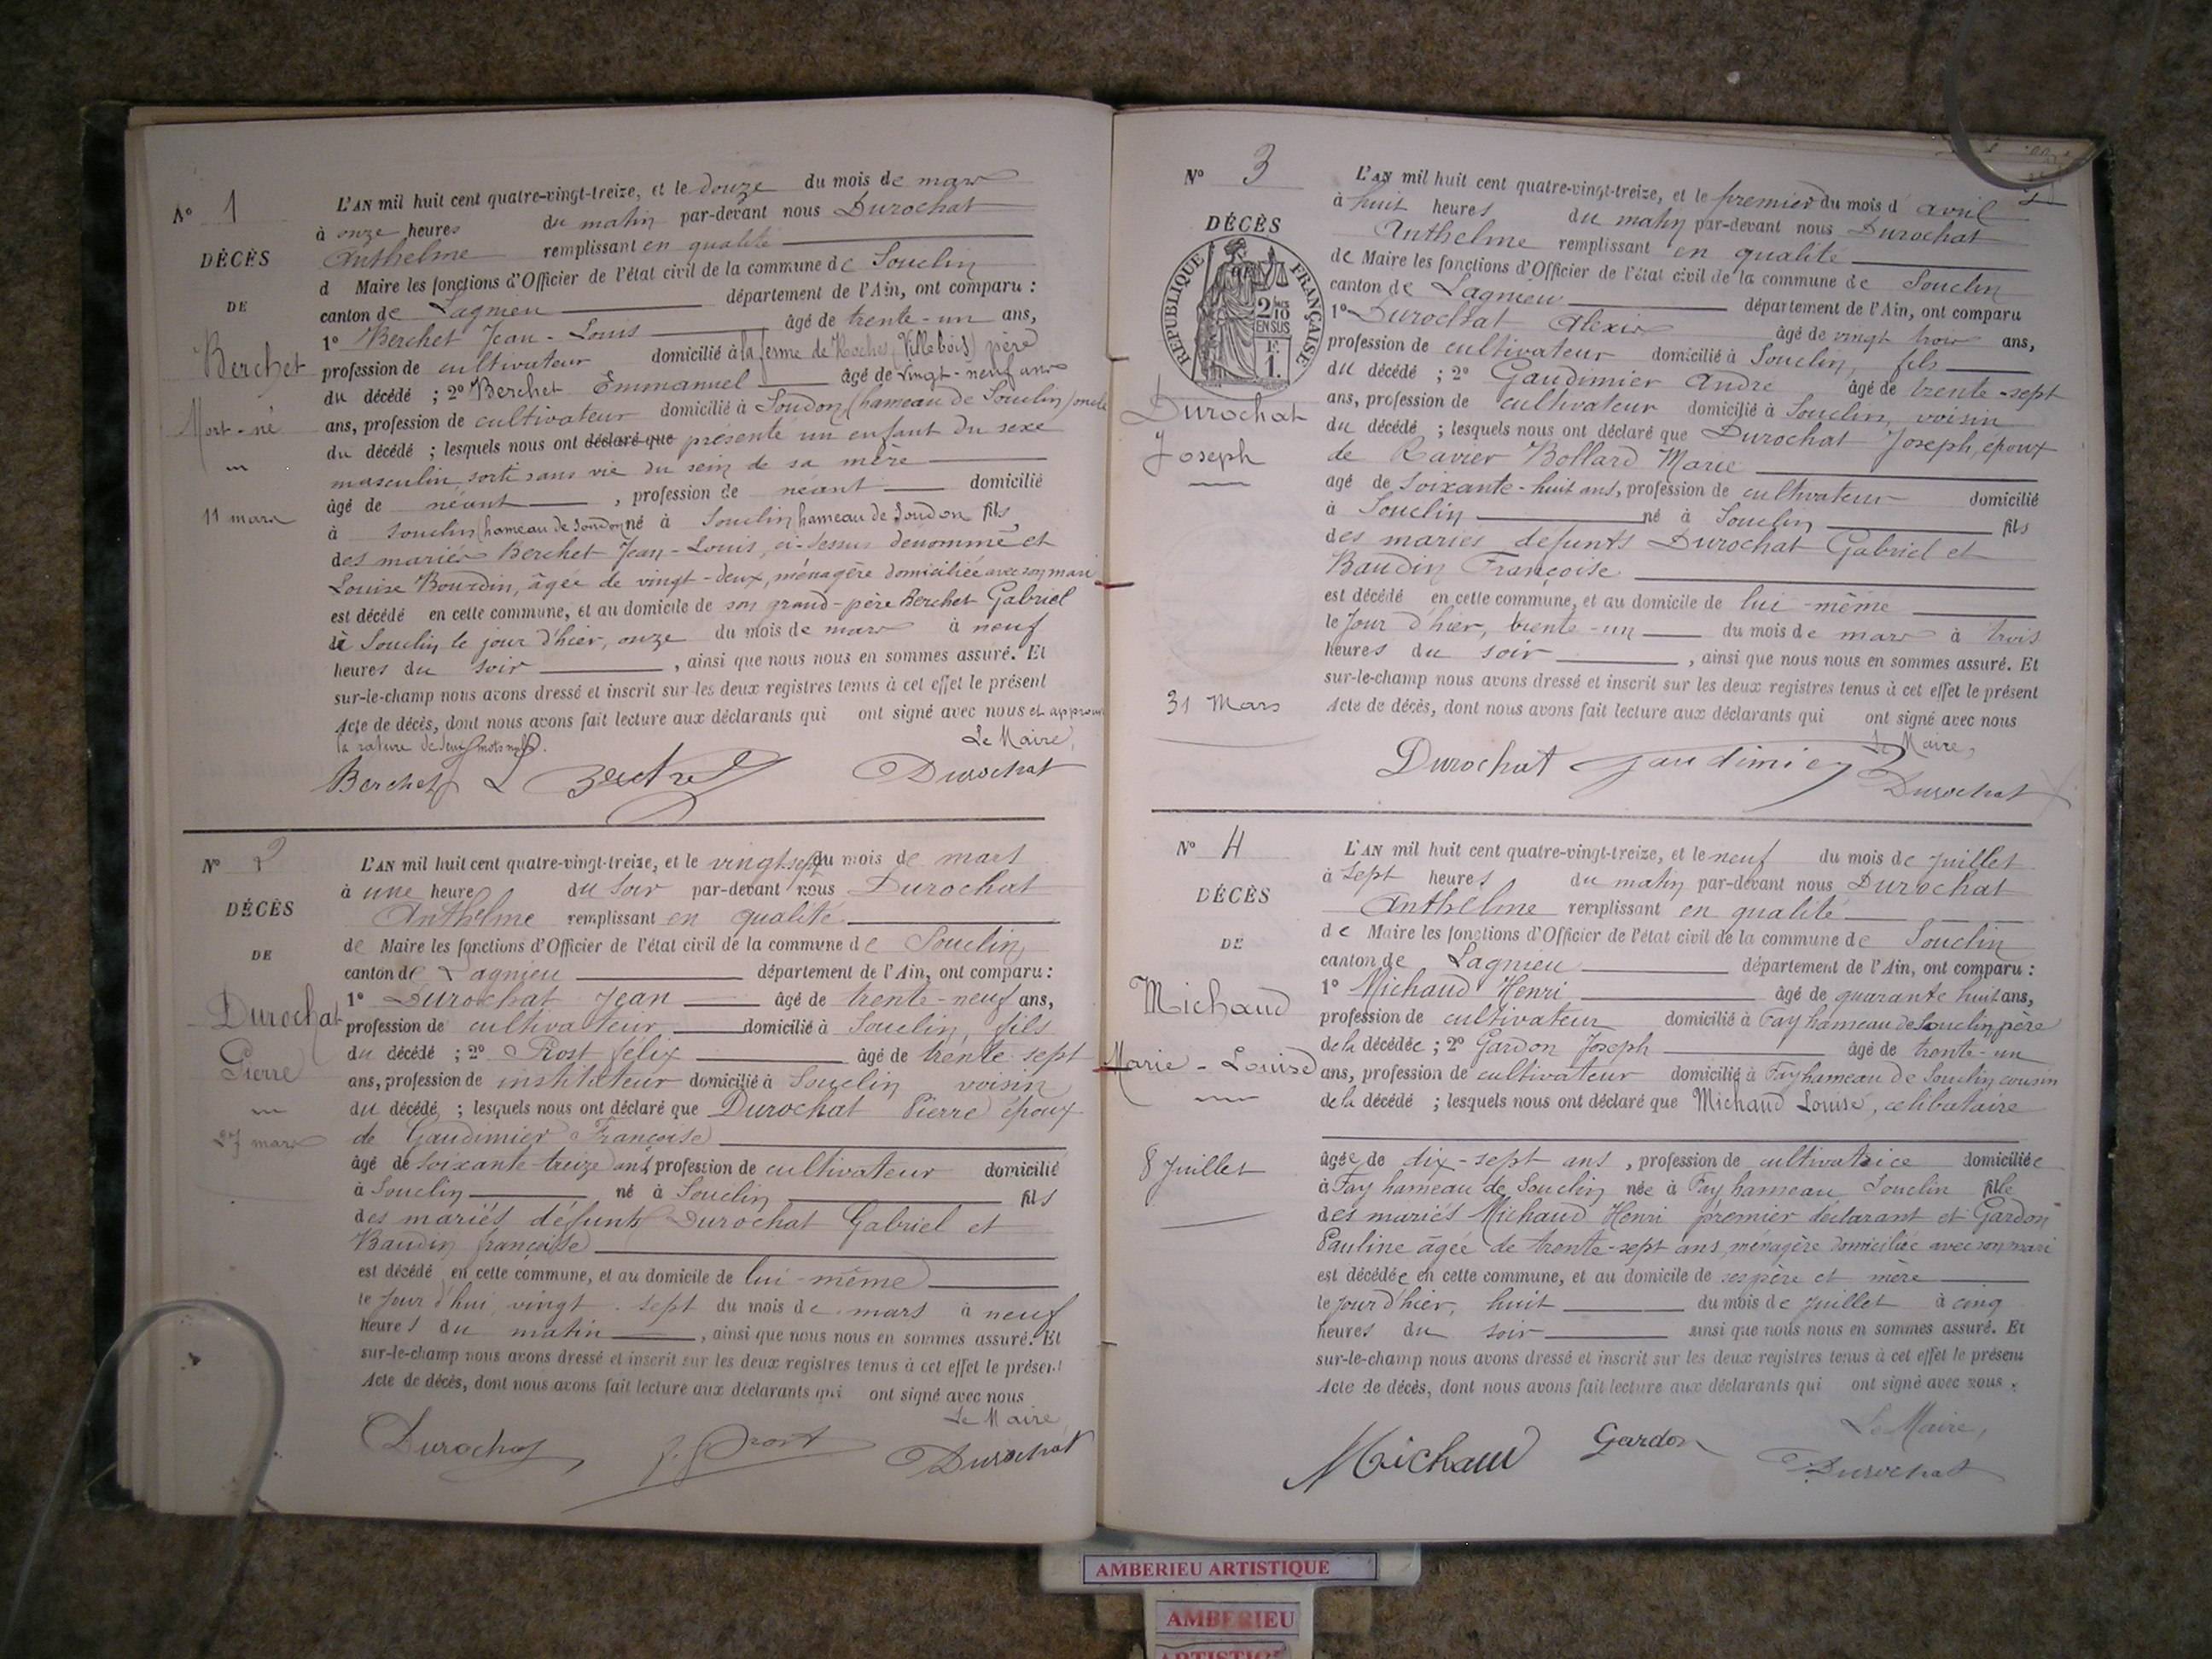 N° 1
DÉCÈS
DE
Berchet
Mort-né
11 mars
L'AN mil huit cent quatre-vingt-treize, et le douze du mois de mars
à onze heures du matin par-devant nous Durochat
Anthelme remplissant en qualité
d Maire les fonctions d'Officier de l'état civil de la commune de Souclin
canton de Lagnieu département de l'Ain, ont comparu :
1° Berchet Jean-Louis âgé de trente-un ans,
profession de cultivateur domicilié à la ferme de Roches (Villebois) père
du décédé ; 2° Berchet Emmanuel âgé de vingt-neuf ans
ans, profession de cultivateur domicilié à Soudon (hameau de Souclin) oncle
du décédé ; lesquels nous ont déclaré que présenté un enfant du sexe
masculin sorti sans vie du sein de sa mère
âgé de néant , profession de néant domicilié
à Souclin (hameau de Soudon) né à Souclin hameau de Soudon fils
des mariés Berchet Jean-Louis, ci-dessus dénommé et
Louise Bourdin, âgée de vingt-deux, ménagère domiciliée avec son mari
est décédé en cette commune, et au domicile de son grand-père Berchet Gabriel
à Souclin le jour d'hier, onze du mois de mars à neuf
heures du soir , ainsi que nous nous en sommes assuré. Et
sur-le-champ nous avons dressé et inscrit sur les deux registres tenus à cet effet le présent
Acte de décès, dont nous avons fait lecture aux déclarants qui ont signé avec nous et approuvé
la rature de deux mots nuls.
Le Maire,
Berchet Durochat
N° 2
DÉCÈS
DE
Durochat
Pierre
27 mars
L'AN mil huit cent quatre-vingt-treize, et le vingt-sept du mois de mars
à une heure du soir par-devant nous Durochat
Anthelme remplissant en qualité
de Maire les fonctions d'Officier de l'état civil de la commune de Souclin
canton de Lagnieu département de l'Ain, ont comparu :
1° Durochat Jean âgé de trente-neuf ans,
profession de cultivateur, domicilié à Souclin, fils
du décédé ; 2° Prost félix âgé de trente sept
ans, profession de instituteur domicilié à Souclin voisin
du décédé ; lesquels nous ont déclaré que Durochat Pierre époux
de Gaudimier Françoise
âgé de soixante treize ans profession de cultivateur domicilié
à Souclin né à Souclin fils
des mariés défunts Durochat Gabriel et
Baudin françoise
est décédé en cette commune, et au domicile de lui-même
le jour d'hui vingt-sept du mois de mars à neuf
heures du matin , ainsi que nous nous en sommes assuré. Et
sur-le-champ nous avons dressé et inscrit sur les deux registres tenus à cet effet le présent
Acte de décès, dont nous avons fait lecture aux déclarants qui ont signé avec nous
Le Maire
Durochat J. Prost Durochat
N° 3
DÉCÈS
RÉPUBLIQUE FRANÇAISE
2/10 EN SUS
1.
Durochat
Joseph
31 Mars
L'AN mil huit cent quatre-vingt-treize, et le premier du mois d avril
à huit heures du matin par-devant nous Durochat
Anthelme remplissant en qualité
de Maire les fonctions d'Officier de l'état civil de la commune de Souclin
canton de Lagnieu département de l'Ain, ont comparu
1° Durochat Alexis âgé de vingt trois ans,
profession de cultivateur domicilié à Souclin, fils
du décédé ; 2° Gaudimier André âgé de trente-sept
ans, profession de cultivateur domicilié à Souclin, voisin
du décédé ; lesquels nous ont déclaré que Durochat Joseph, époux
de Ravier Bollard Marie
agé de soixante-huit ans, profession de cultivateur domicilié
à Souclin né à Souclin fils
des mariés défunts Durochat Gabriel et
Baudin Françoise
est décédé en cette commune, et au domicile de lui-même
le jour d'hier, trente-un du mois de mars à trois
heures du soir , ainsi que nous nous en sommes assuré. Et
sur-le-champ nous avons dressé et inscrit sur les deux registres tenus à cet effet le présent
Acte de décès, dont nous avons fait lecture aux déclarants qui ont signé avec nous
Le Maire,
Durochat gaudimier Durochat
N° 4
DÉCÈS
DE
Michaud
Marie-Louise
8 Juillet
L'AN mil huit cent quatre-vingt-treize, et le neuf du mois de juillet
à sept heures du matin par-devant nous Durochat
Anthelme remplissant en qualité
de Maire les fonctions d'Officier de l'état civil de la commune de Souclin
canton de Lagnieu département de l'Ain, ont comparu :
1° Michaud Henri âgé de quarante huit ans,
profession de cultivateur domicilié à Fay hameau de Souclin père
de la décédée ; 2° Gardon Joseph âgé de trente-un
ans, profession de cultivateur domicilié à Fay hameau de Souclin cousin
de la décédé ; lesquels nous ont déclaré que Michaud Louise, célibataire
âgée de dix-sept ans , profession de cultivatrice domiciliée
à Fay hameau de Souclin née à Fay hameau Souclin fille
des mariés Michaud Henri premier déclarant et Gardon
Pauline âgée de trente-sept ans ménagère domiciliée avec son mari
est décédée en cette commune, et au domicile de ses père et mère
le jour d'hier, huit du mois de juillet à cinq
heures du soir ainsi que nous nous en sommes assuré. Et
sur-le-champ nous avons dressé et inscrit sur les deux registres tenus à cet effet le présent
Acte de décès, dont nous avons fait lecture aux déclarants qui ont signé avec nous.
Le Maire,
Michaud Gardon Durochat
AMBERIEU ARTISTIQUE
AMBERIEU
ARTISTIQUE